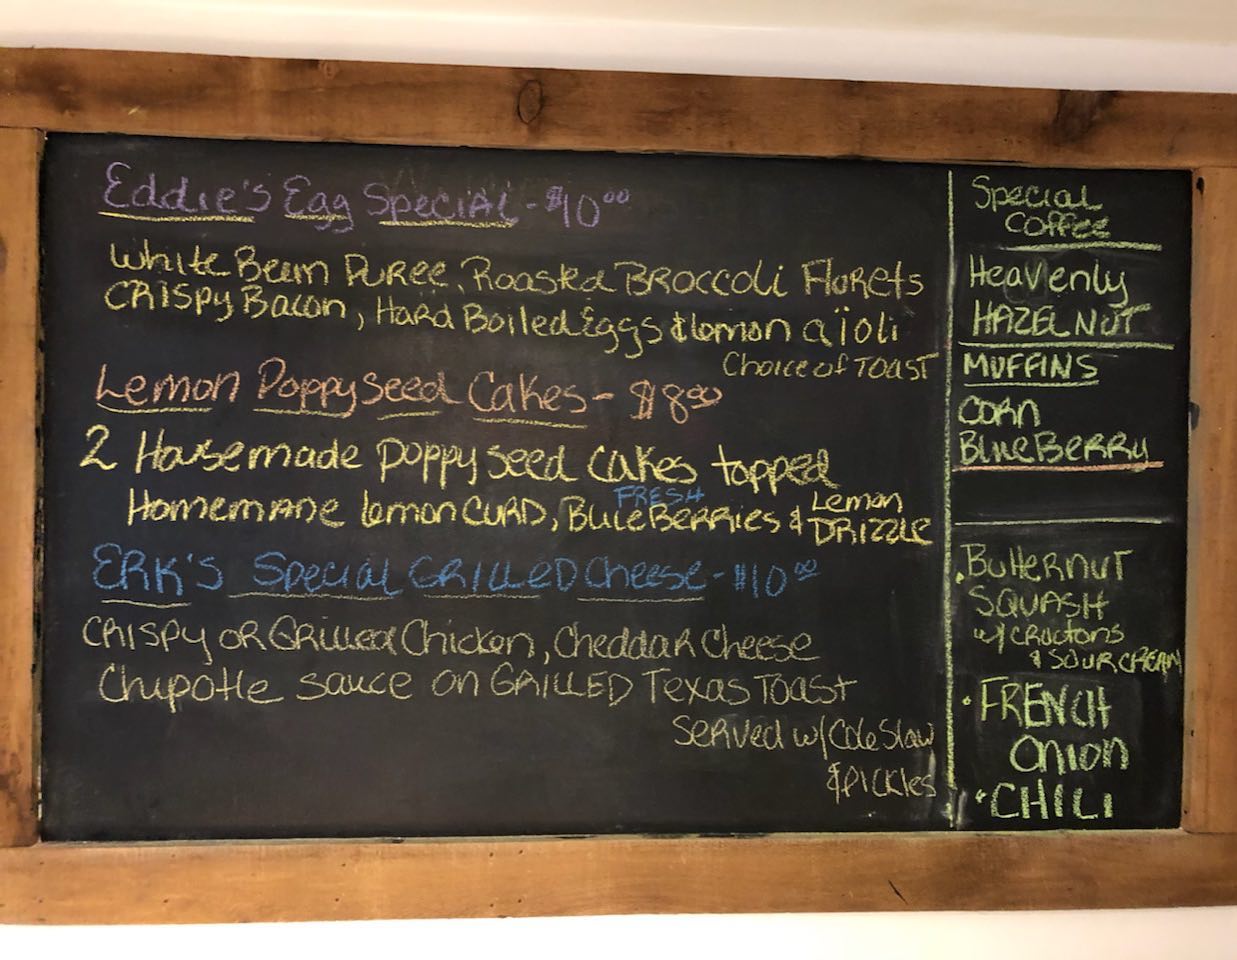 Eddie's Egg Special - $10.00
White Bean Puree, Roasted Broccoli Florets
Crispy Bacon, Hard Boiled Eggs & lemon aïoli
Choice of Toast
Lemon Poppy Seed Cakes - $8.00
2 Housemade poppy seed cakes topped
Homemade lemon curd, Fresh Blueberries & Lemon Drizzle
ERK'S Special GRILLED Cheese - $10.00
Crispy or Grilled Chicken, Cheddar Cheese
Chipotle sauce on GRILLED Texas Toast
Served w/ Cole Slaw
& Pickles
Special
Coffee
Heavenly
HAZELNUT
MUFFINS
CORN
BlueBERRY
• Butternut
SQUASH
w/ croutons
& SOUR CREAM
• FRENCH
Onion
• CHILI